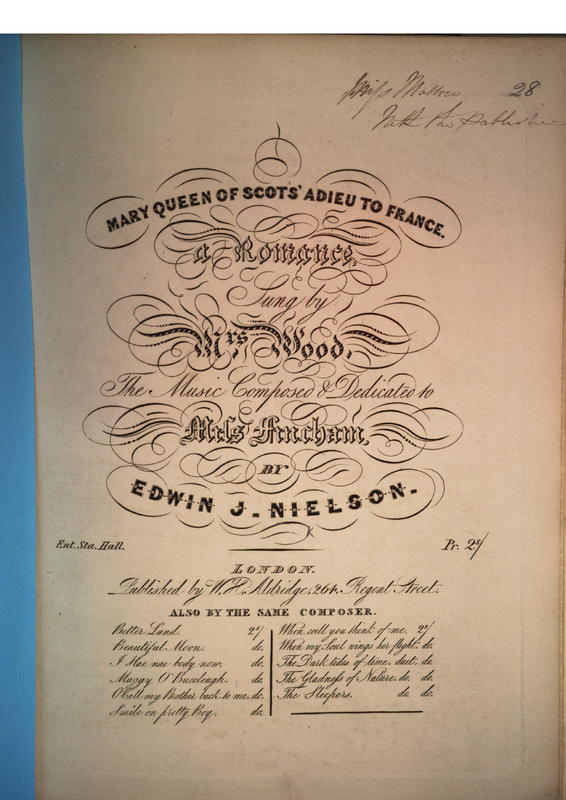 Miss 28
With the Publisher
MARY QUEEN OF SCOTS' ADIEU TO FRANCE.
a Romance,
Sung by
Mrs Wood.
The Music Composed & Dedicated to
Miss Fincham,
BY
EDWIN J. NIELSON.
Ent. Sta. Hall. Pr. 2s/
LONDON.
Published by W. H. Aldridge, 264, Regent Street.
ALSO BY THE SAME COMPOSER.
Better Land. 2s/
Beautiful Moon. do.
I Hae nae body now. do.
Maggy O'Buccleugh. do.
O Call my Brother back to me. do.
Smile on pretty Boy. do.
When will you think of me. 2s/
When my Soul wings her flight. do.
The Dark tides of time, duet, do.
The Gladness of Nature. do. do.
The Sleepers. do. do.